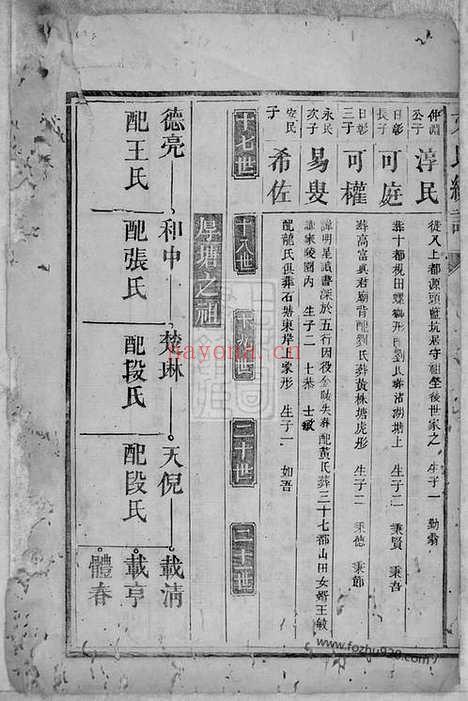 仲淵公子 淳民 徙入上都源頭藍坑居守祖塋後世家之 生子一 勤翁
日彰長子 可庭 葬十都視田螺螄形 劉氏葬 湖塘上 生子二 秉賢 秉吾
日彰三子 可權 葬高富真君廟背配劉氏葬黃株塘虎形 生子二 秉德 秉節
永民次子 易叟 諱明星識書深於五行因役金陵失葬配黃氏葬三十七都山田女婿王敏讓家陵園內 生子二 士恭 士敏
安民子 希佐 配龍氏俱葬石塘東岸上象形 生子一 如吾
十七世 十八世 十九世 二十世 二十一世
厚塘之祖
德亮 和中 楚琳 天倪 載清
配王氏 配張氏 配段氏 配段氏 載亨
體春
nayona.cn
www.fozhu920.com